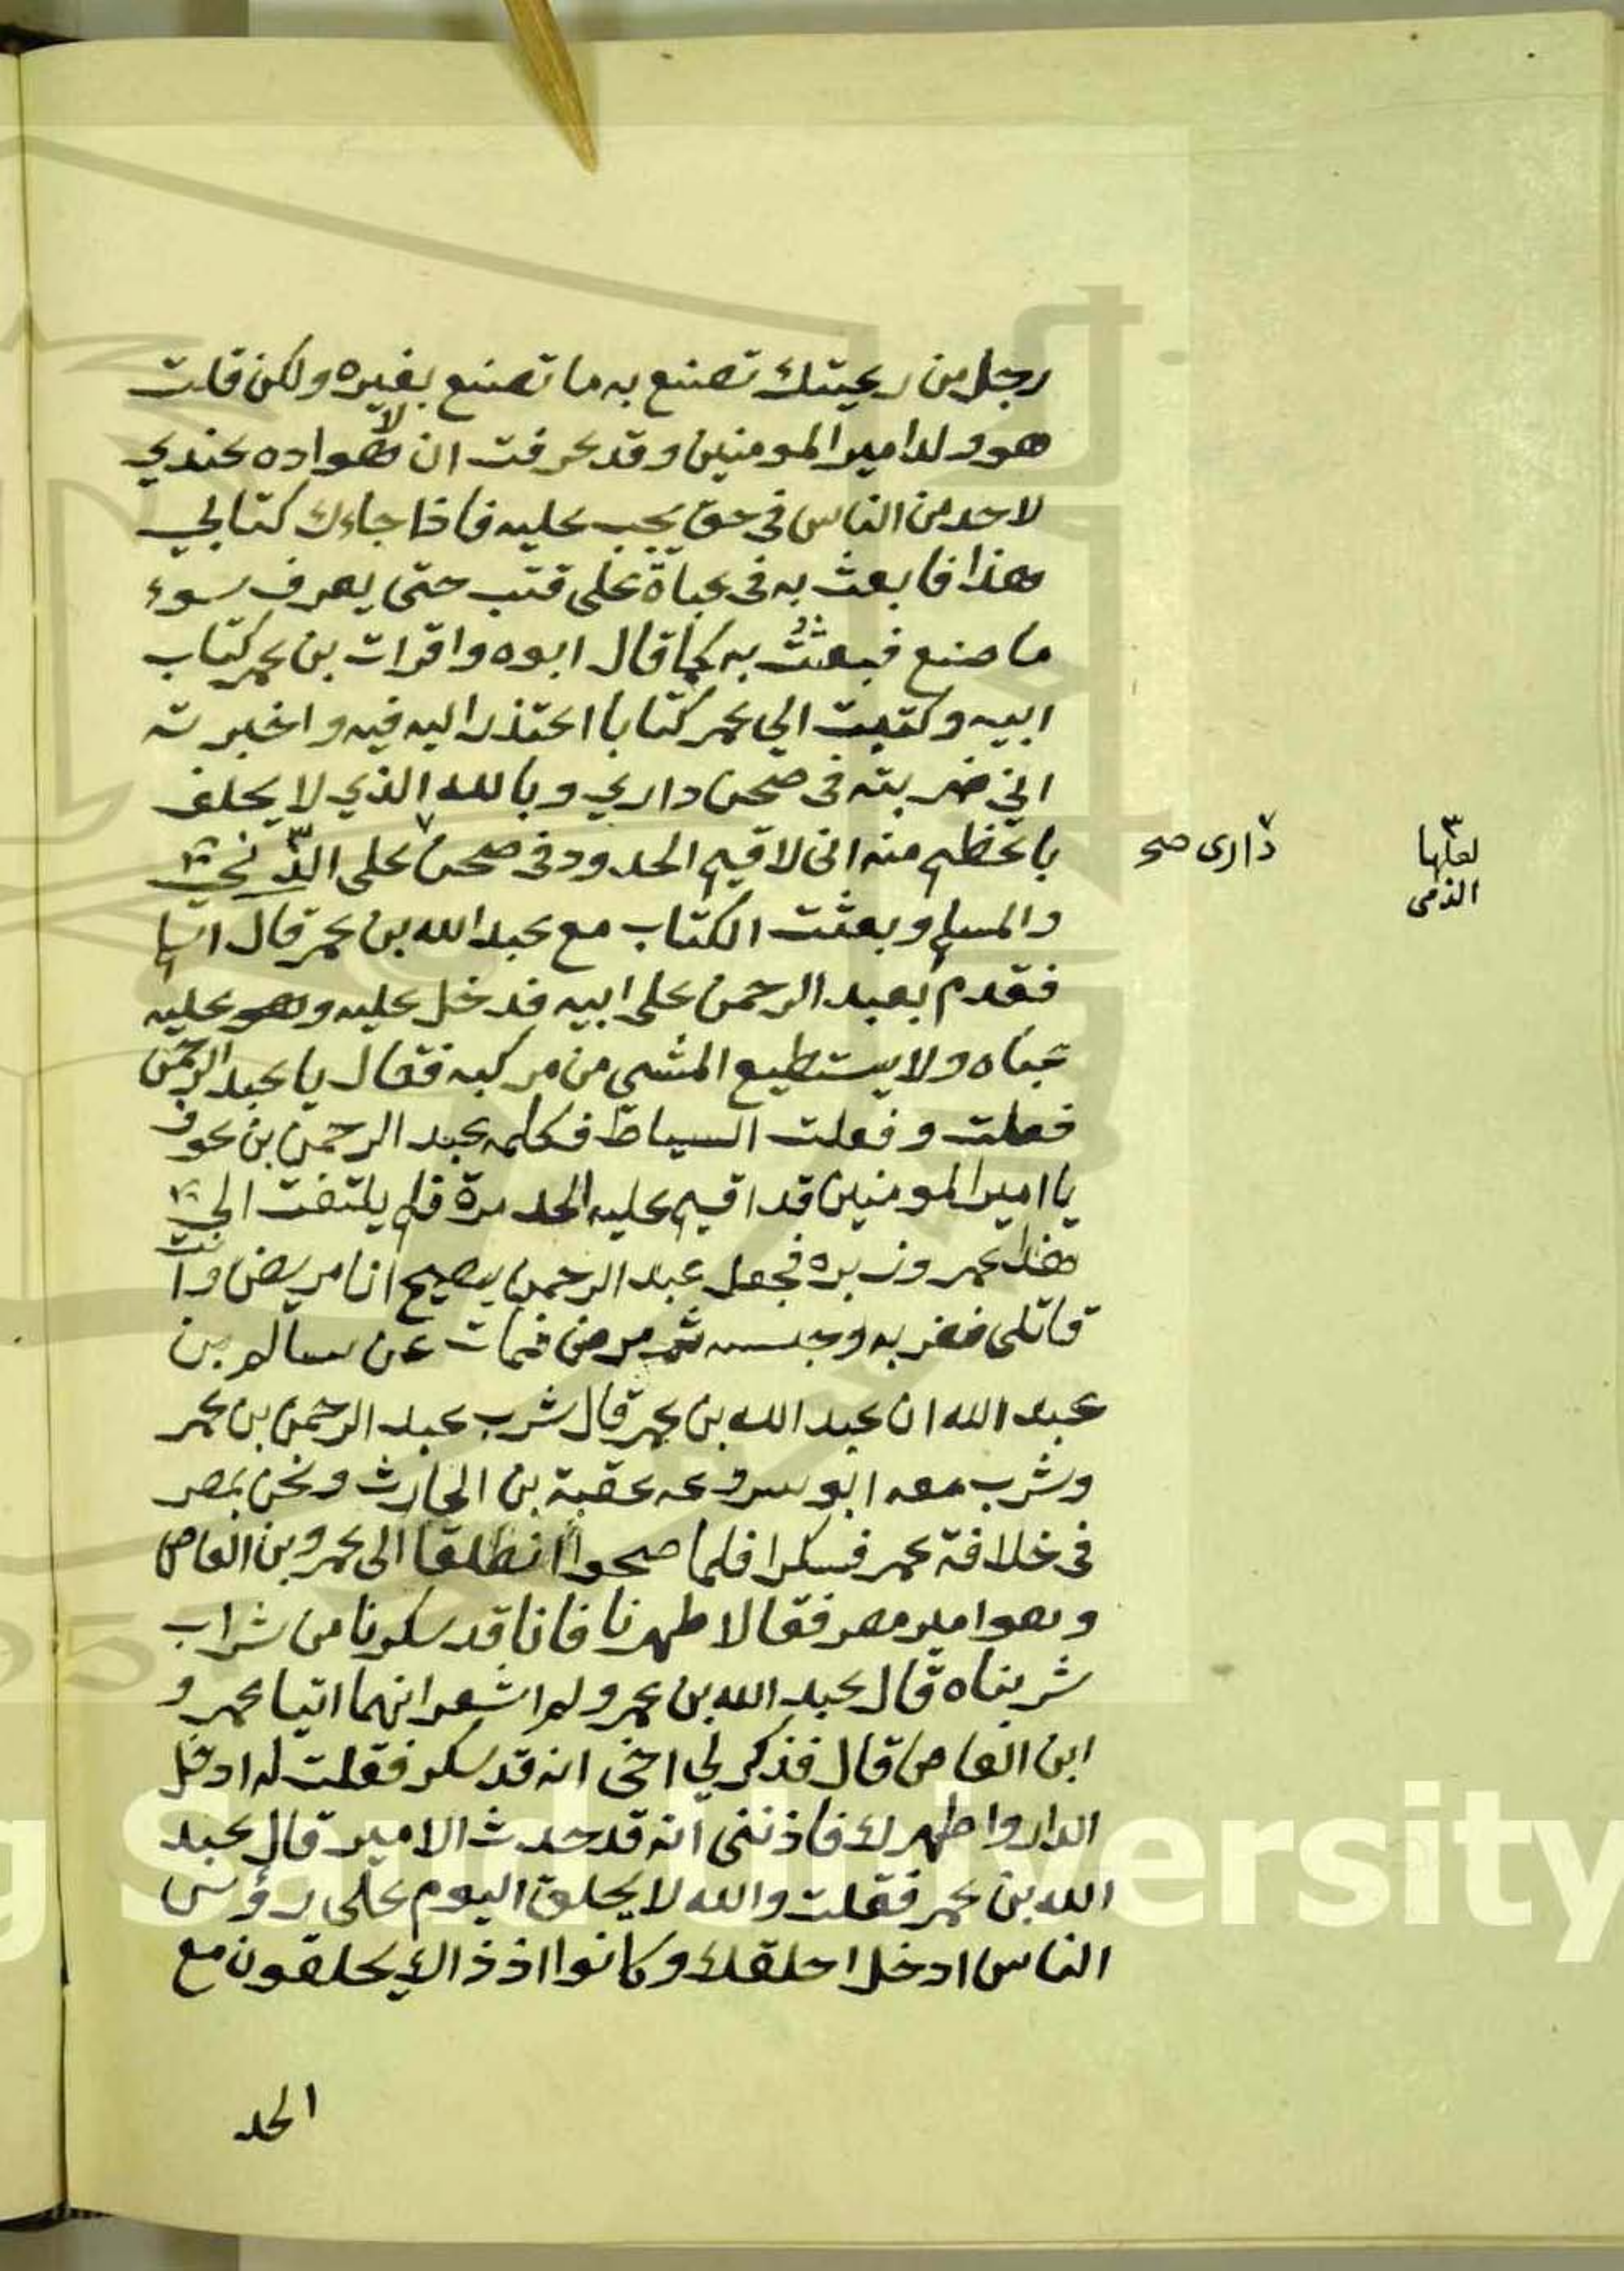 رجل من رعيتك تصنع به ما تصنع بغيره ولكن قلت
هو ولد امير المومنين وقد عرفت ان لا هواده عندي
لاحد من الناس في حق يجب عليه فاذا جاءك كتابي
هذا فابعث به في عباة على قتب حتى يعرف سوء
ما صنع فبعثت به كما قال ابوه واقرات بن عمر كتاب
ابيه وكتبت الي عمر كتابا اعتذر اليه فيه واخبرته
اني ضربته في صحن داري وبالله الذي لا يحلف
باعظم منه اني لاقيم الحدود في صحن على الذي
داري صح
لعلها
الذمي
والمسلم وبعثت الكتاب مع عبد الله بن عمر قال اسلم
فقدم بعبد الرحمن على ابيه فدخل عليه وهو عليه
عباه ولا يستطيع المشي من مركبه فقال يا عبد الرحمن
فعلت وفعلت السياط فكلمه عبد الرحمن بن عوف
يا امير المومنين قد اقيم عليه الحد مرة فلم يلتفت الي
هذا عمر وزبره فجعل عبد الرحمن يصيح انا مريض وانت
قاتلى فضربه وحبسه ثم مرض فمات عن سالم بن
عبد الله ان عبد الله بن عمر قال شرب عبد الرحمن بن عمر
وشرب معه ابو سروعه عقبة بن الحارث ونحن بمصر
في خلافة عمر فسكرا فلما صحوا انطلقا الى عمرو بن العاص
وهو امير مصر فقالا طهرنا فانا قد سكرنا من شراب
شربناه قال عبد الله بن عمر ولم اشعر انهما اتيا عمرو
ابن العاص قال فذكر لي اخى انه قد سكر فقلت له ادخل
الدار واطهرك فاذننى انه قد حدث الامير قال عبد
الله بن عمر فقلت والله لا يحلق اليوم على رؤس
الناس ادخل احلقك وكانوا اذ ذاك يحلقون مع
الحد
g Saud University